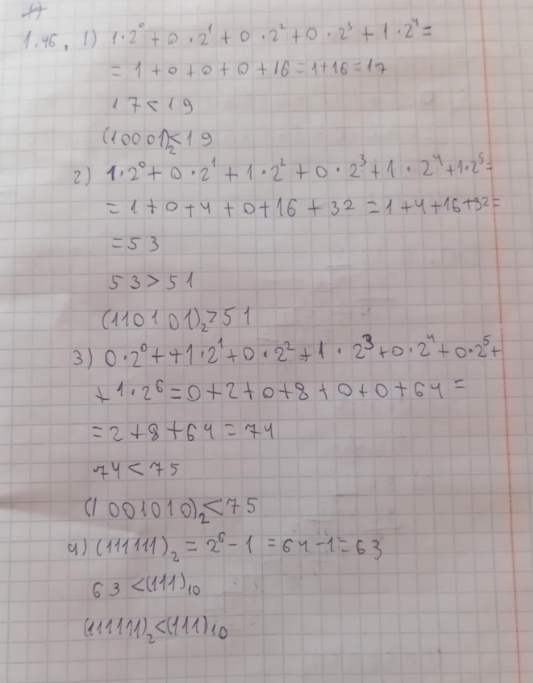 1.46. 1) 1·2⁰ + 0·2¹ + 0·2² + 0·2³ + 1·2⁴ =
= 1 + 0 + 0 + 0 + 16 = 1+16 = 17
17 < 19
(10001)₂ < 19
2) 1·2⁰ + 0·2¹ + 1·2² + 0·2³ + 1·2⁴ + 1·2⁵ =
= 1 + 0 + 4 + 0 + 16 + 32 = 1 + 4 + 16 + 32 =
= 53
53 > 51
(110101)₂ > 51
3) 0·2⁰ + + 1·2¹ + 0·2² + 1·2³ + 0·2⁴ + 0·2⁵ +
+ 1·2⁶ = 0 + 2 + 0 + 8 + 0 + 0 + 64 =
= 2 + 8 + 64 = 74
74 < 75
(1001010)₂ < 75
4) (111111)₂ = 2⁶ - 1 = 64 - 1 = 63
63 < (111)₁₀
(111111)₂ < (111)₁₀